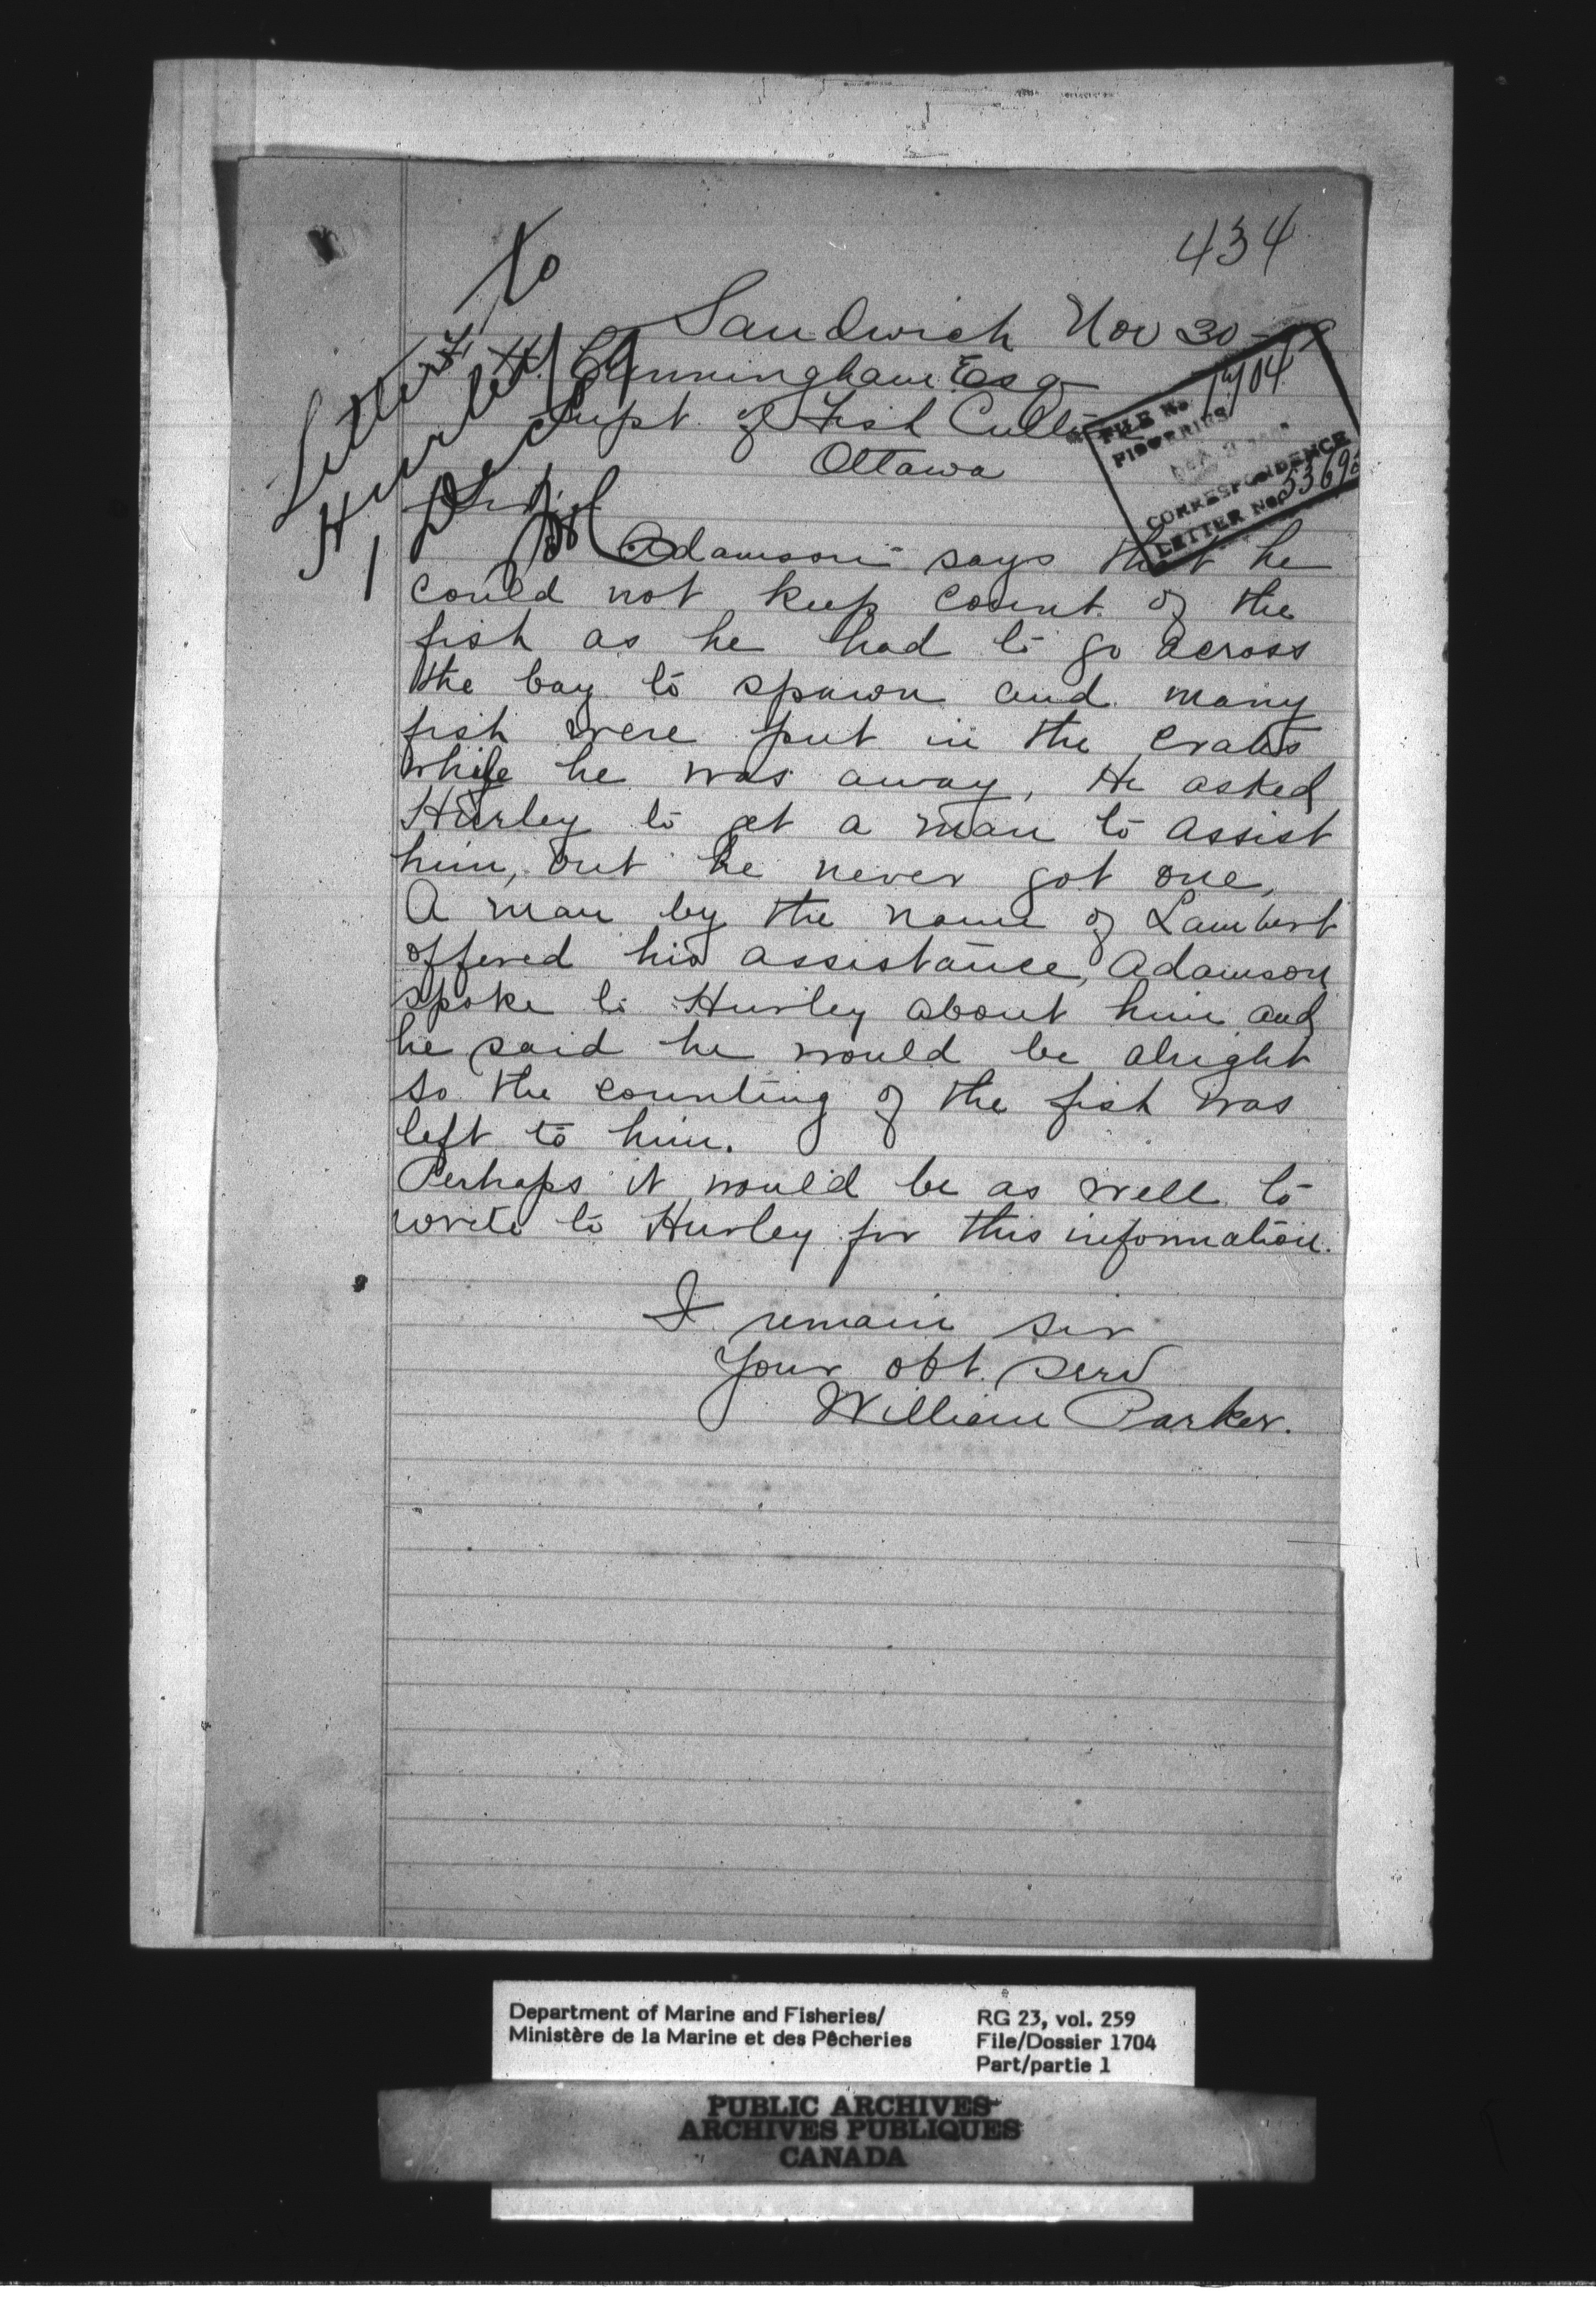 434
Sandwich Nov 30
F. H. Cunningham Esq
Supt of Fish Culture
Ottawa
Letter to
Hurley
1 Dec
FILE No. 1704
FISHERIES
CORRESPONDENCE
LETTER No.
Sir
Adamson says that he
could not keep count of the
fish as he had to go across
the bay to spawn and many
fish were put in the crates
while he was away, He asked
Hurley to get a man to assist
him, but he never got one,
A man by the name of Lambert
offered his assistance, Adamson
spoke to Hurley about him and
he said he would be alright
so the counting of the fish was
left to him.
Perhaps it would be as well to
write to Hurley for this information.
I remain sir
Your obt. serv
William Parker.
Department of Marine and Fisheries/
Ministère de la Marine et des Pêcheries
RG 23, vol. 259
File/Dossier 1704
Part/partie 1
PUBLIC ARCHIVES
ARCHIVES PUBLIQUES
CANADA